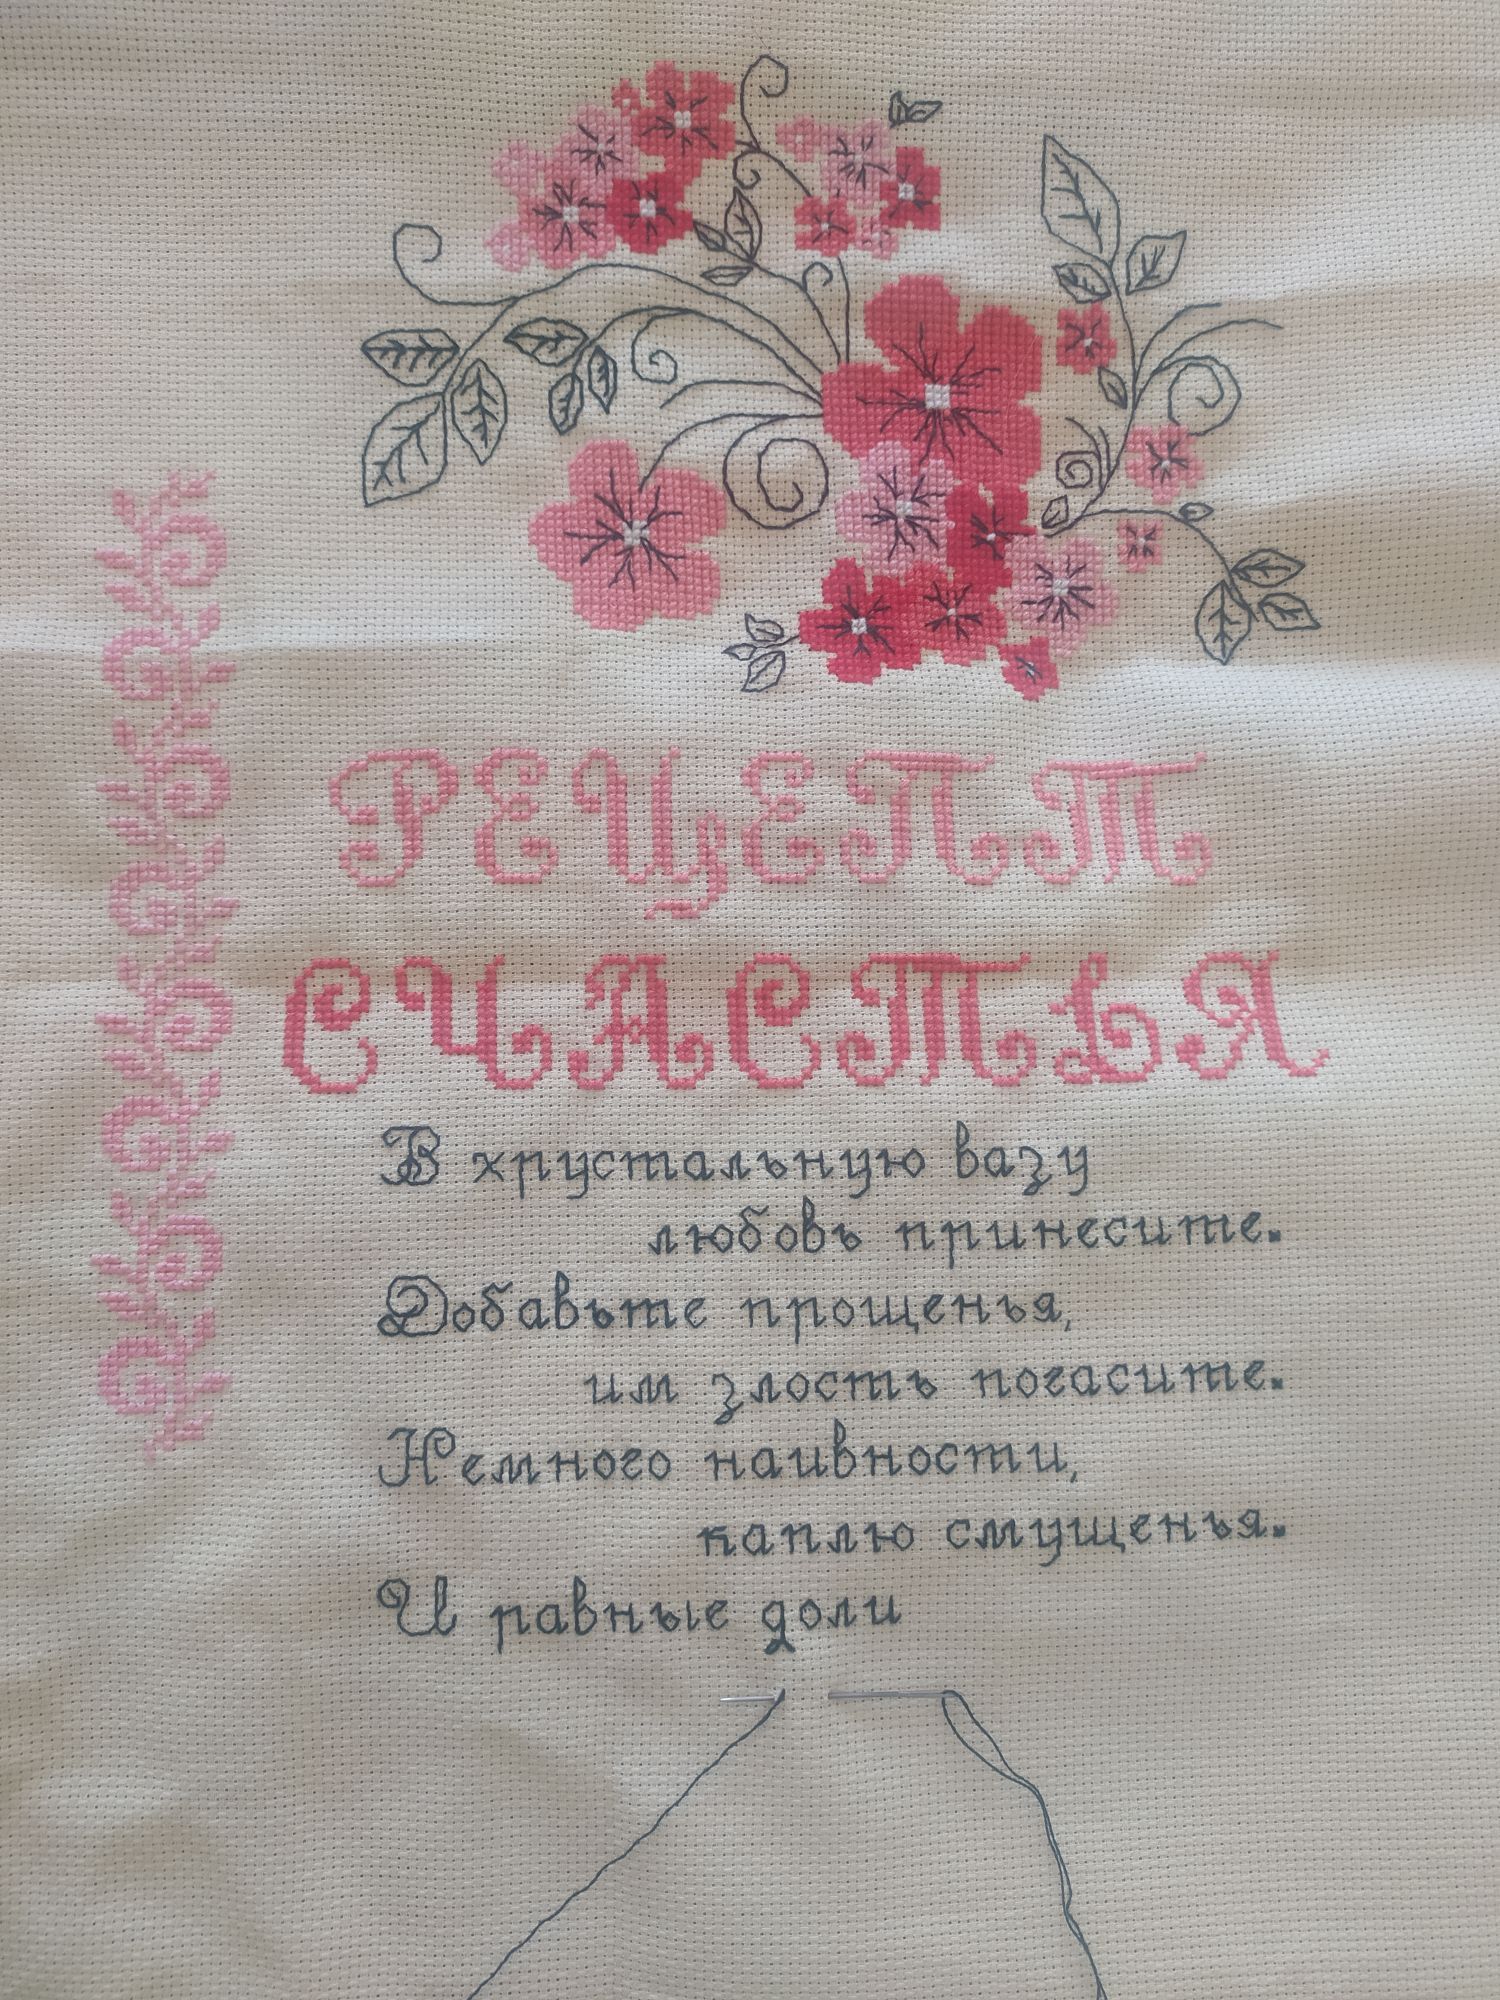 РЕЦЕПТ
СЧАСТЬЯ
В хрустальную вазу
любовь принесите.
Добавьте прощенья,
им злость погасите.
Немного наивности,
каплю смущенья.
И равные доли